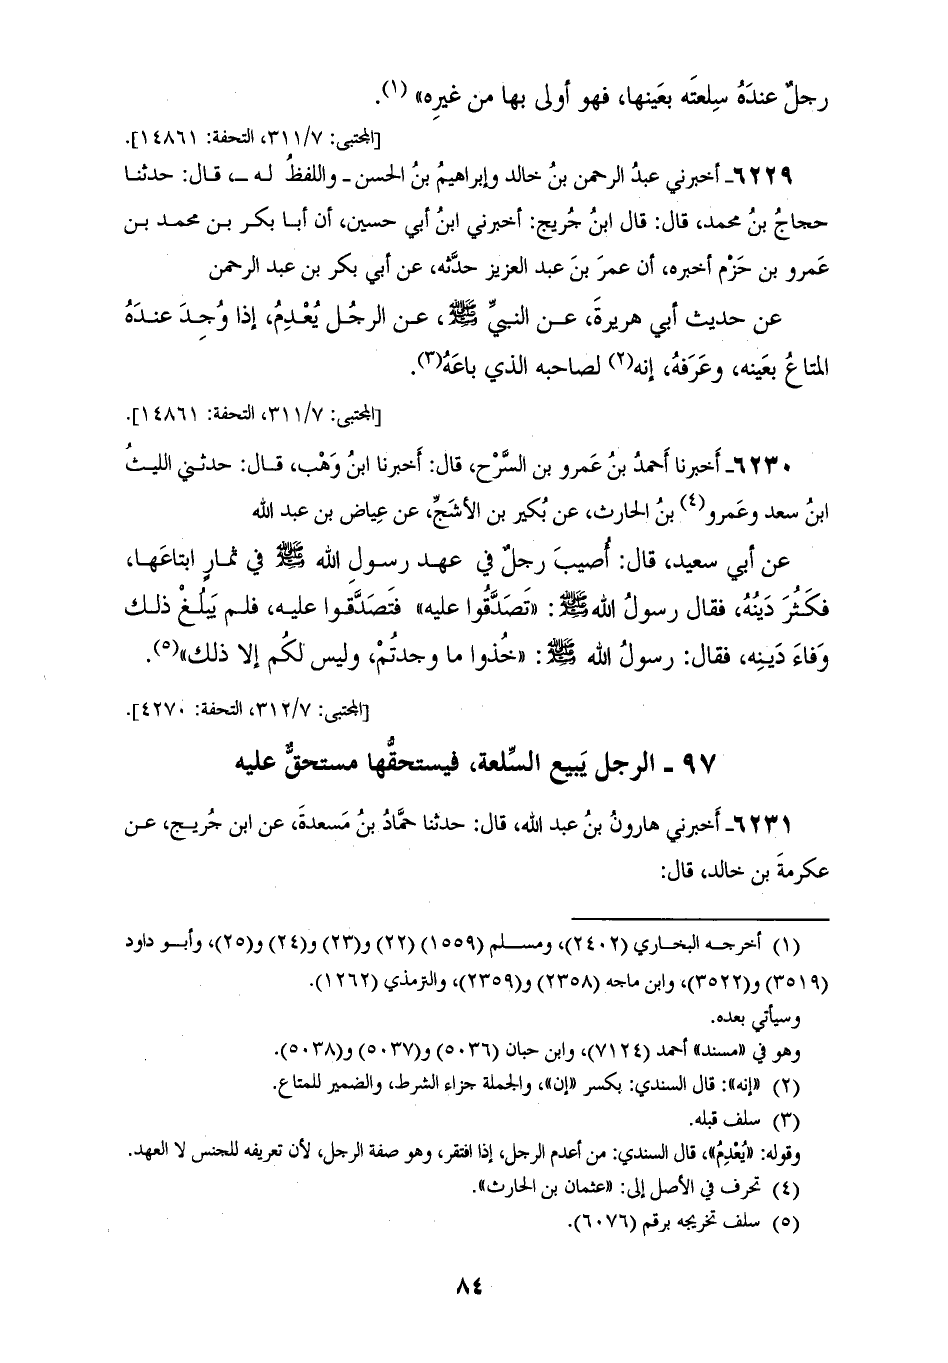 رجلٌ عندَهُ سِلعتَه بعَينها، فهو أولى بها من غيرِه» (١).
[المجتبى: ٣١١/٧، التحفة: ١٤٨٦١].
٦٢٢٩ـ أخبرني عبدُ الرحمن بنُ خالد وإبراهيمُ بنُ الحسن ـ واللفظُ له ـ، قال: حدثنا
حجاجُ بنُ محمد، قال: قال ابنُ جُريج: أخبرني ابنُ أبي حسين، أن أبا بكر بن محمد بن
عَمرو بن حَزْم أخبره، أن عمرَ بنَ عبد العزيز حدَّثه، عن أبي بكر بن عبد الرحمن
عن حديث أبي هريرةَ، عن النبيِّ ﷺ، عن الرجُل يُعْدِمُ، إذا وُجِدَ عندَهُ
المتاعُ بعَينه، وعَرَفهُ، إنه(٢) لصاحبه الذي باعَهُ(٣).
[المجتبى: ٣١١/٧، التحفة: ١٤٨٦١].
٦٢٣٠ـ أَخبرنا أَحمدُ بنُ عَمرو بن السَّرْح، قال: أَخبرنا ابنُ وَهْب، قال: حدثني الليثُ
ابنُ سعد وعَمرو(٤) بنُ الحارث، عن بُكير بن الأشَجِّ، عن عِياض بن عبد الله
عن أبي سعيد، قال: أُصيبَ رجلٌ في عهد رسولِ الله ﷺ في ثمارٍ ابتاعَها،
فكَثُرَ دَينُهُ، فقال رسولُ الله ﷺ: «تَصدَّقُوا عليه» فتَصدَّقوا عليه، فلم يَبلُغْ ذلك
وَفاءَ دَينِه، فقال: رسولُ الله ﷺ: «خُذوا ما وجدتُمْ، وليس لكُم إلا ذلك»(٥).
[المجتبى: ٣١٢/٧، التحفة: ٤٢٧٠].
٩٧ ـ الرجل يَبيع السِّلعة، فيستحقُّها مستحقٌّ عليه
٦٢٣١ـ أَخبرني هارونُ بنُ عبد الله، قال: حدثنا حمَّادُ بنُ مَسعدةَ، عن ابن جُريج، عن
عكرمةَ بن خالد، قال:
(١) أخرجه البخاري (٢٤٠٢)، ومسلم (١٥٥٩) (٢٢) و(٢٣) و(٢٤) و(٢٥)، وأبو داود
(٣٥١٩) و(٣٥٢٢)، وابن ماجه (٢٣٥٨) و(٢٣٥٩)، والترمذي (١٢٦٢).
وسيأتي بعده.
وهو في «مسند» أحمد (٧١٢٤)، وابن حبان (٥٠٣٦) و(٥٠٣٧) و(٥٠٣٨).
(٢) «إنه»: قال السندي: بكسر «إن»، والجملة جزاء الشرط، والضمير للمتاع.
(٣) سلف قبله.
وقوله: «يُعْدِمُ»، قال السندي: من أعدم الرجل، إذا افتقر، وهو صفة الرجل، لأن تعريفه للجنس لا العهد.
(٤) تحرف في الأصل إلى: «عثمان بن الحارث».
(٥) سلف تخريجه برقم (٦٠٧٦).
٨٤